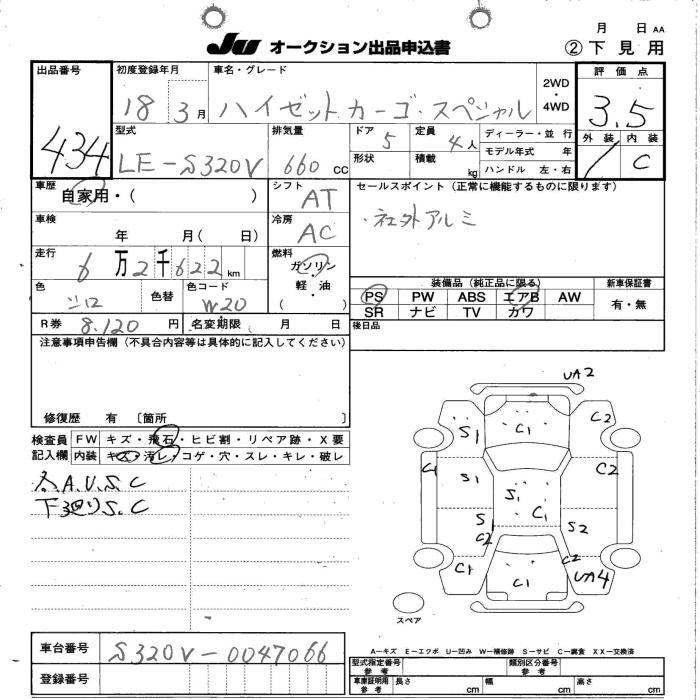 月 日 AA
Ju オークション出品申込書 ②下見用
出品番号 初度登録年月 車名・グレード 評価点
434 18 3月 ハイゼットカーゴ・スペシャル 2WD・4WD 3.5
型式 排気量 ドア 5 定員 4人 ディーラー・並行 外装 内装
LE-S320V 660 cc 形状 積載 kg モデル年式 年 / C
ハンドル 左・右
車歴 シフト セールスポイント(正常に機能するものに限ります)
自家用・( ) AT
車検 冷房 ・社外アルミ
年 月( 日) AC
走行 燃料
6万2千622km ガソリン・軽油
( )
装備品(純正品に限る) 新車保証書
色 色替 色コード PS PW ABS エアB AW 有・無
シロ W20 SR ナビ TV カワ
R券 8.120円 名変期限 月 日 後日品
注意事項申告欄(不具合内容等は具体的に記入してください)
修復歴 有 〔箇所 〕
検査員 FW キズ・飛石・ヒビ割・リペア跡・X要
記入欄 内装 キズ・汚レ・コゲ・穴・スレ・キレ・破レ
A.U.S.C
下廻りS.C
UA2
S1 C1 C2
C1 S1 C2
S1 C1
S1 C2 S2
C1 C1 C2 UA4
スペア
A-キズ E-エクボ U-凹み W-補修跡 S-サビ C-腐食 XX-交換済
車台番号 S320V-0047066
型式指定番号 参考 類別区分番号 参考
登録番号 車庫証明用 参考 長さ cm 幅 cm 高さ cm